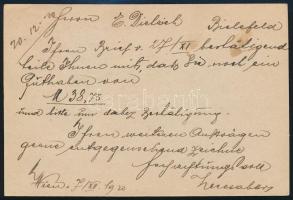 20-12-20
Herrn E. Dietrich Bielefeld
Ihren Brief v. 27/XI bestätigend
teile Ihnen mit, daß Sie noch ein
Guthaben von
M 38,75
und bitte um Bestätigung.
Ihren weiteren Aufträgen
gerne entgegensehend zeichne
hochachtungsvoll
Wien. 7/XII 1920